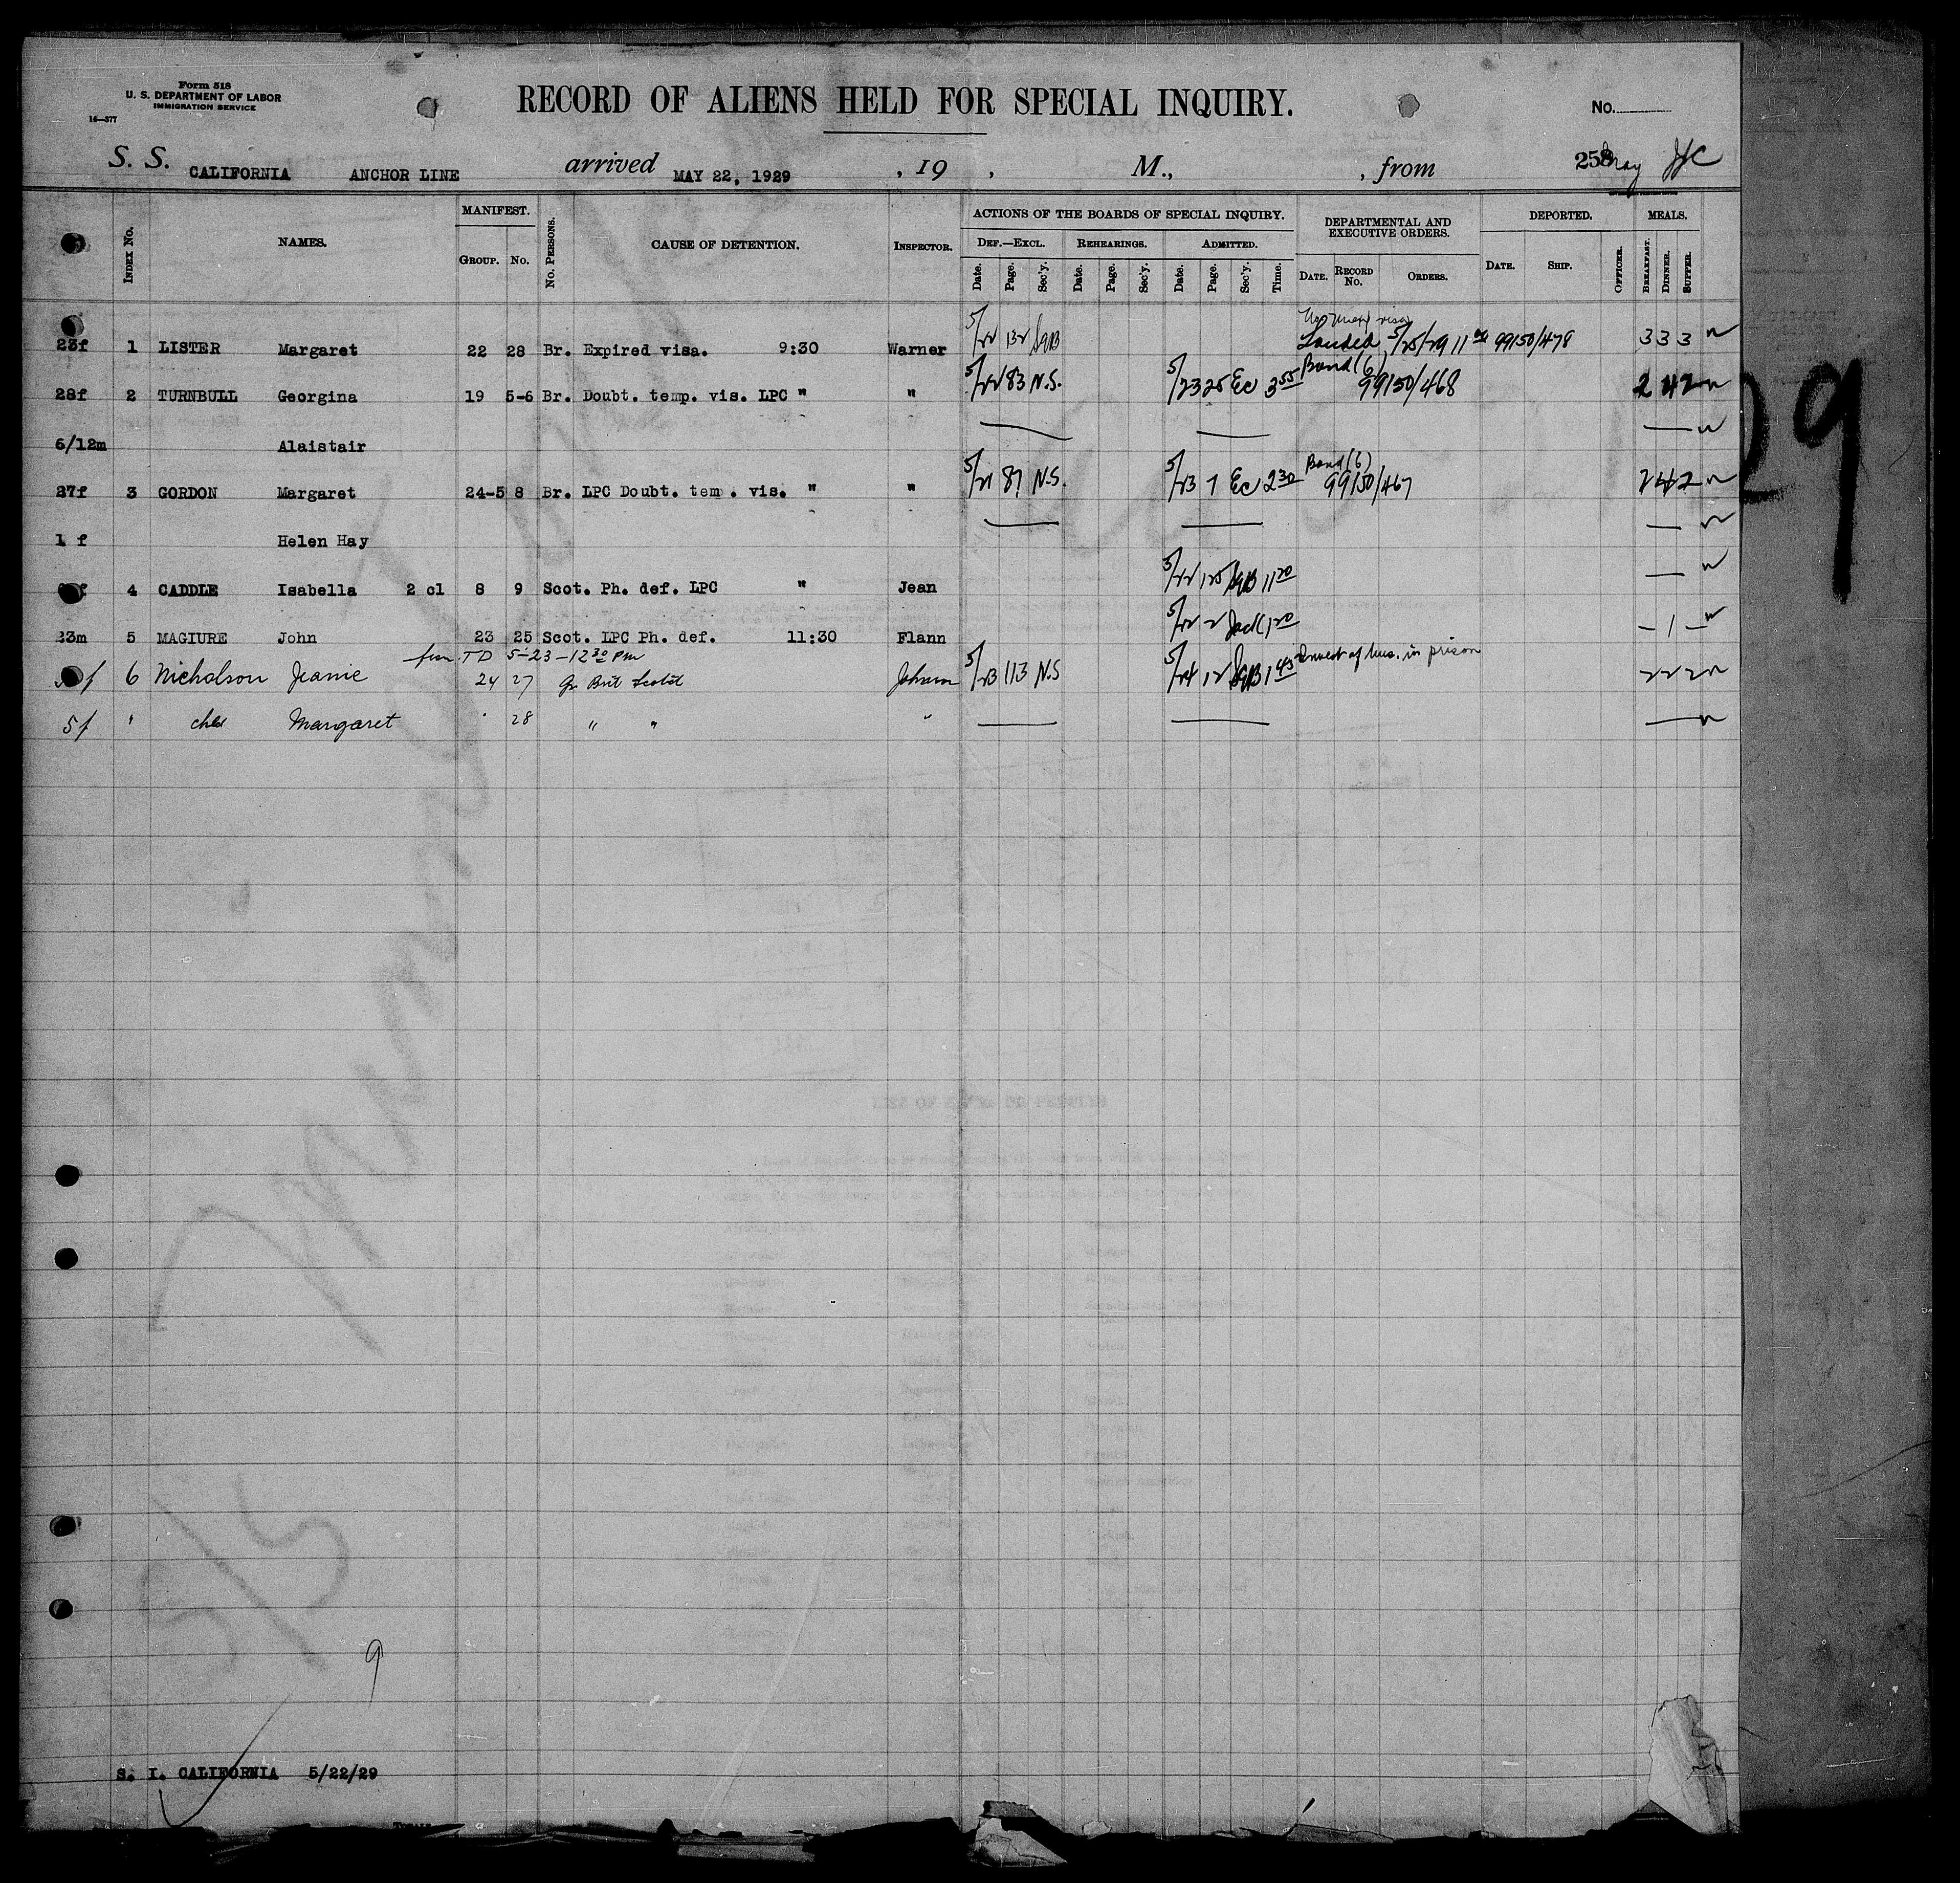 Form 518
U. S. DEPARTMENT OF LABOR
IMMIGRATION SERVICE
14—377
RECORD OF ALIENS HELD FOR SPECIAL INQUIRY.
No.
S. S. CALIFORNIA ANCHOR LINE arrived MAY 22, 1929 , 19 , M., , from 258
INDEX No. NAMES. MANIFEST. GROUP. No. No. PERSONS. CAUSE OF DETENTION. INSPECTOR. ACTIONS OF THE BOARDS OF SPECIAL INQUIRY. DEF.—EXCL. Date. Page. Sec'y. REHEARINGS. Date. Page. Sec'y. ADMITTED. Date. Page. Sec'y. Time. DEPARTMENTAL AND EXECUTIVE ORDERS. DATE. RECORD No. ORDERS. DEPORTED. DATE. SHIP. OFFICER. MEALS. BREAKFAST. DINNER. SUPPER.
23f 1 LISTER Margaret 22 28 Br. Expired visa. 9:30 Warner 5/22 132 Landed 5/25/29 11 99150/478 3 3 3
28f 2 TURNBULL Georgina 19 5-6 Br. Doubt. temp. vis. LPC " " 5/22 83 N.S. 5/23 25 EC 3 55 Bond (6) 99150/468 2 4 2
6/12m Alaistair
27f 3 GORDON Margaret 24-5 8 Br. LPC Doubt. tem . vis. " " 87 N.S. 5/23 7 EC 2 30 Bond (6) 99150/467 2 4 2
1 f Helen Hay
4 CADDLE Isabella 2 cl 8 9 Scot. Ph. def. LPC " Jean 5/22 125 11 20
33m 5 MAGIURE John 23 25 Scot. LPC Ph. def. 11:30 Flann 5/22 2 1 20 – 1 –
from TD 5-23-12 30 PM
f 6 Nicholson Jeanie 24 27 Gr Brit Scotch Johnson 5/23 113 N.S 5/24 12 1 45 Invest of hus. in prison 2 2 2
5f " child Margaret 28 " " "
29
9
S. I. CALIFORNIA 5/22/29